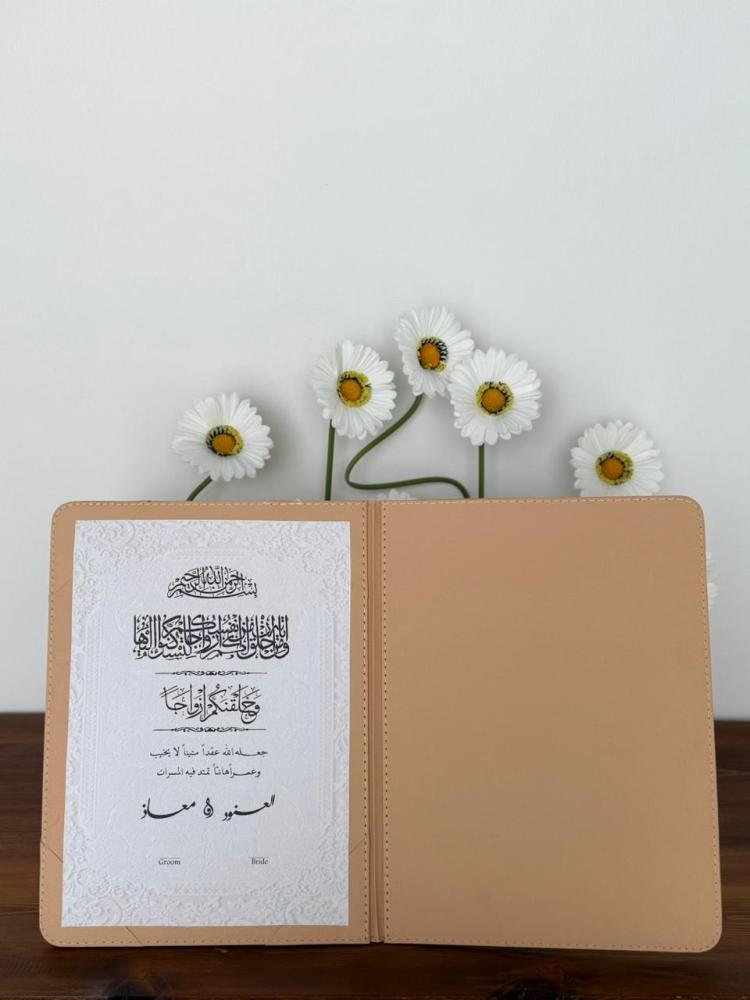 بسم الله الرحمن الرحيم
ومن آياته أن خلق لكم من أنفسكم أزواجا لتسكنوا إليها
وَخَلَقْنَكُمْ أَزْوَاجًا
جعله الله عقداً متيناً لا يخيب
وعمراً هانئاً تمتد فيه المسرات
العنود و معاذ
Groom Bride